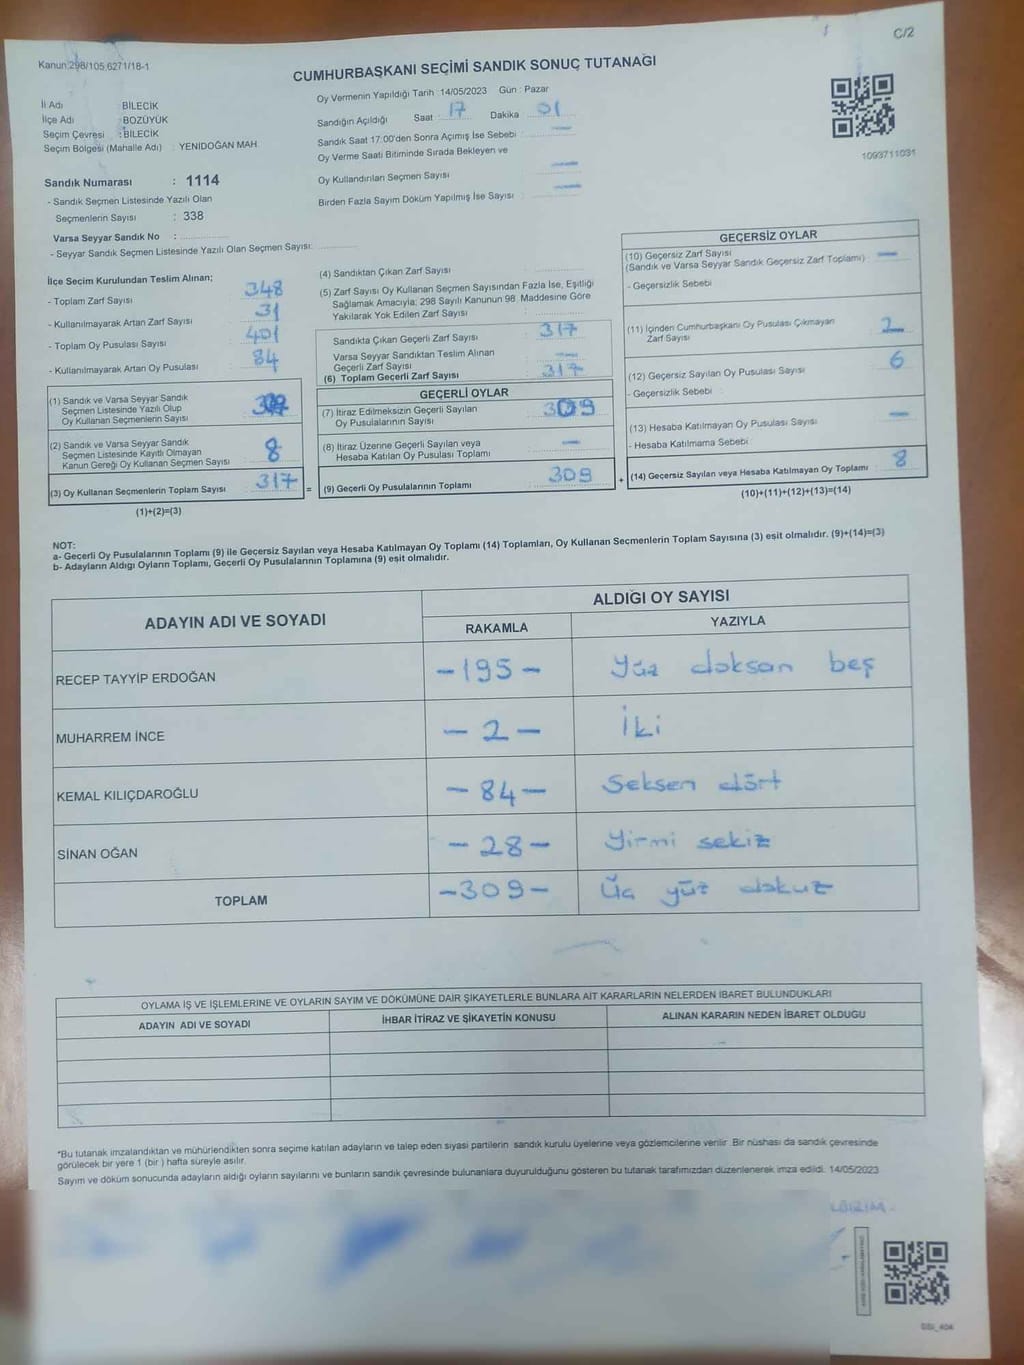 C/2
Kanun:298/105,6271/18-1
CUMHURBAŞKANI SEÇİMİ SANDIK SONUÇ TUTANAĞI
Oy Vermenin Yapıldığı Tarih :14/05/2023 Gün : Pazar
İl Adı : BİLECİK
İlçe Adı : BOZÜYÜK
Seçim Çevresi : BİLECİK
Seçim Bölgesi (Mahalle Adı) : YENİDOĞAN MAH
Sandığın Açıldığı Saat : 17 Dakika : 01
Sandık Saat 17:00'den Sonra Açımış İse Sebebi : —
Oy Verme Saati Bitiminde Sırada Bekleyen ve
Oy Kullandırılan Seçmen Sayısı : —
Birden Fazla Sayım Döküm Yapılmış İse Sayısı : —
1093711031
Sandık Numarası : 1114
- Sandık Seçmen Listesinde Yazılı Olan
Seçmenlerin Sayısı : 338
Varsa Seyyar Sandık No :
- Seyyar Sandık Seçmen Listesinde Yazılı Olan Seçmen Sayısı:
İlçe Seçim Kurulundan Teslim Alınan;
- Toplam Zarf Sayısı : 348
- Kullanılmayarak Artan Zarf Sayısı : 31
- Toplam Oy Pusulası Sayısı : 401
- Kullanılmayarak Artan Oy Pusulası : 84
(1) Sandık ve Varsa Seyyar Sandık
Seçmen Listesinde Yazılı Olup
Oy Kullanan Seçmenlerin Sayısı
(2) Sandık ve Varsa Seyyar Sandık
Seçmen Listesinde Kayıtlı Olmayan
Kanun Gereği Oy Kullanan Seçmen Sayısı : 8
(3) Oy Kullanan Seçmenlerin Toplam Sayısı : 317 =
(1)+(2)=(3)
(4) Sandıktan Çıkan Zarf Sayısı :
(5) Zarf Sayısı Oy Kullanan Seçmen Sayısından Fazla İse, Eşitliği
Sağlamak Amacıyla; 298 Sayılı Kanunun 98. Maddesine Göre
Yakılarak Yok Edilen Zarf Sayısı :
Sandıkta Çıkan Geçerli Zarf Sayısı : 317
Varsa Seyyar Sandıktan Teslim Alınan
Geçerli Zarf Sayısı : —
(6) Toplam Geçerli Zarf Sayısı : 317
GEÇERLİ OYLAR
(7) İtiraz Edilmeksizin Geçerli Sayılan
Oy Pusulasının Sayısı : 309
(8) İtiraz Üzerine Geçerli Sayılan veya
Hesaba Katılan Oy Pusulası Toplamı : —
(9) Geçerli Oy Pusulalarının Toplamı : 309 +
GEÇERSİZ OYLAR
(10) Geçersiz Zarf Sayısı
(Sandık ve Varsa Seyyar Sandık Geçersiz Zarf Toplamı) : —
- Geçersizlik Sebebi :
(11) İçinden Cumhurbaşkanı Oy Pusulası Çıkmayan
Zarf Sayısı : 2
(12) Geçersiz Sayılan Oy Pusulası Sayısı : 6
- Geçersizlik Sebebi :
(13) Hesaba Katılmayan Oy Pusulası Sayısı : —
- Hesaba Katılmama Sebebi :
(14) Geçersiz Sayılan veya Hesaba Katılmayan Oy Toplamı : 8
(10)+(11)+(12)+(13)=(14)
NOT:
a- Geçerli Oy Pusulalarının Toplamı (9) ile Geçersiz Sayılan veya Hesaba Katılmayan Oy Toplamı (14) Toplamları, Oy Kullanan Seçmenlerin Toplam Sayısına (3) eşit olmalıdır. (9)+(14)=(3)
b- Adayların Aldığı Oyların Toplamı, Geçerli Oy Pusulalarının Toplamına (9) eşit olmalıdır.
ADAYIN ADI VE SOYADI
ALDIĞI OY SAYISI
RAKAMLA YAZIYLA
RECEP TAYYİP ERDOĞAN -195- Yüz doksan beş
MUHARREM İNCE -2- İki
KEMAL KILIÇDAROĞLU -84- Seksen dört
SİNAN OĞAN -28- Yirmi sekiz
TOPLAM -309- Üç yüz dokuz
OYLAMA İŞ VE İŞLEMLERİNE VE OYLARIN SAYIM VE DÖKÜMÜNE DAİR ŞİKAYETLERLE BUNLARA AİT KARARLARIN NELERDEN İBARET BULUNDUKLARI
ADAYIN ADI VE SOYADI İHBAR İTİRAZ VE ŞİKAYETİN KONUSU ALINAN KARARIN NEDEN İBARET OLDUĞU
*Bu tutanak imzalandıktan ve mühürlendikten sonra seçime katılan adayların ve talep eden siyasi partilerin sandık kurulu üyelerine veya gözlemcilerine verilir. Bir nüshası da sandık çevresinde
görülecek bir yere 1 (bir) hafta süreyle asılır.
Sayım ve döküm sonucunda adayların aldığı oyların sayılarını ve bunların sandık çevresinde bulunanlara duyurulduğunu gösteren bu tutanak tarafımızdan düzenlenerek imza edildi. 14/05/2023